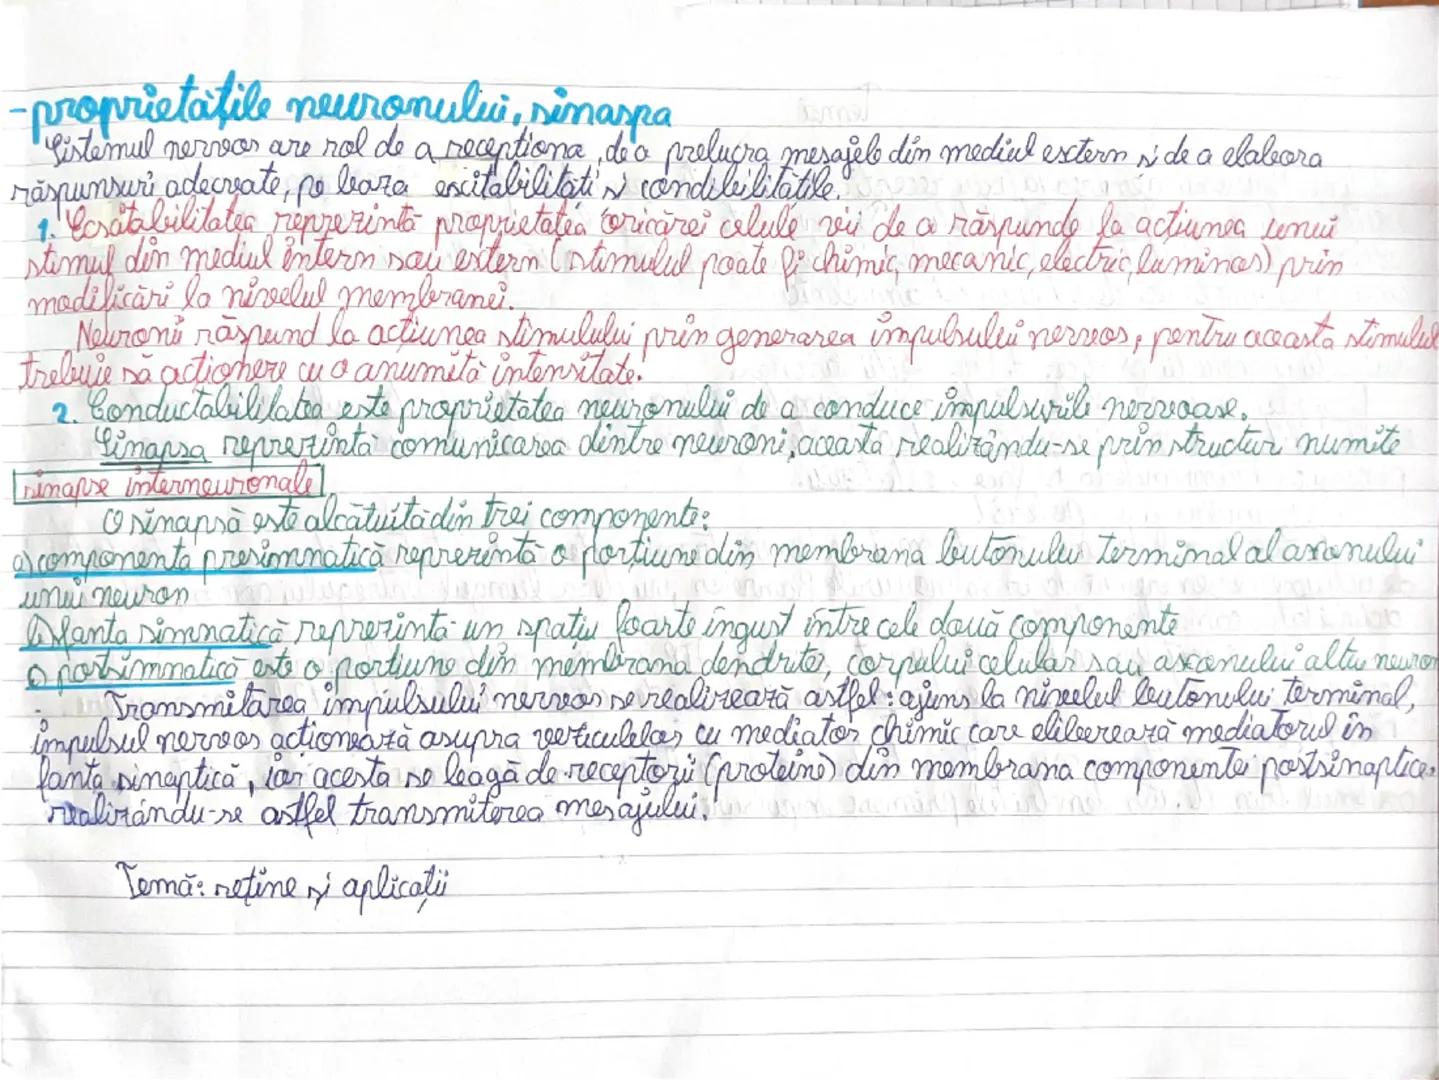 -proprietățile neuronului, sinaspa
Sistemul nervos are rol de a recepționa, de a prelucra mesajele din mediul extern și de a elabora
răspunsuri adecvate, pe baza excitabilități și condibilitățile.
1. Excitabilitatea reprezintă proprietatea oricărei celule vii de a răspunde la acțiunea unui
stimul din mediul intern sau extern (stimulul poate fi chimic, mecanic, electric, luminos) prin
modificări la nivelul membranei.
Neuronii răspund la acțiunea stimulului prin generarea impulsului nervos, pentru aceasta stimulul
trebuie să acționeze cu o anumită intensitate.
2. Conductabilitatea este proprietatea neuronului de a conduce impulsurile nervoase.
Sinapsa reprezintă comunicarea dintre neuroni, aceasta realizându-se prin structuri numite
sinapse interneuronale
O sinapsă este alcătuită din trei componente:
a) componenta presimnatică reprezintă o porțiune din membrana butonului terminal al axonului
unui neuron
b) fanta simnatică reprezintă un spațiu foarte îngust între cele două componente
c) postsimmatică este o porțiune din membrana dendritei, corpului celular sau axonului altui neuron
Transmitarea impulsului nervos se realizează astfel: ajuns la nivelul butonului terminal,
impulsul nervos acționează asupra veziculelor cu mediator chimic care eliberează mediatorul în
fanta sinaptică, iar acesta se leagă de receptorii (proteine) din membrana componentei postsinaptice.
realizându-se astfel transmiterea mesajului.
Temă: reține și aplicații